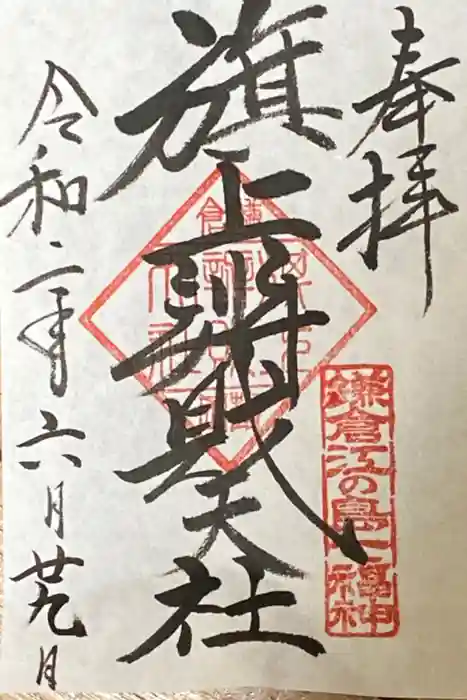 奉拝
鎌倉江の島七福神
旗上辨財天社
令和二年六月廿九日